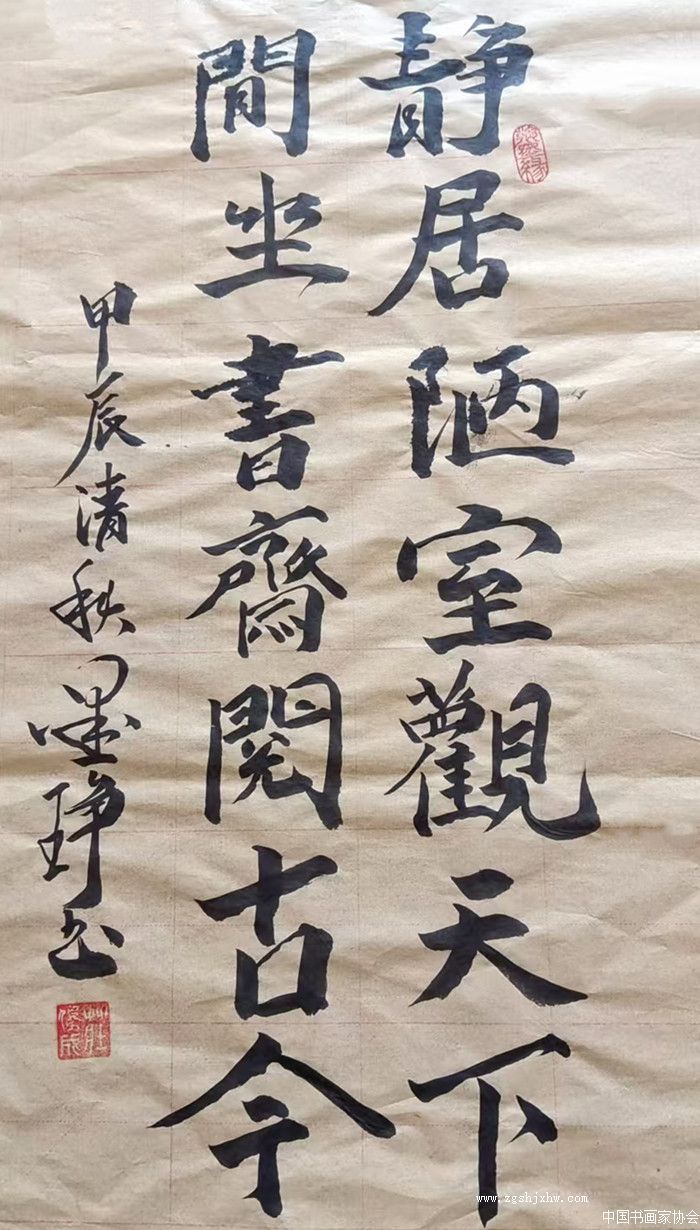 静居陋室觀天下
閒坐書齋閲古今
甲辰清秋墨琤书
www.zgshjxhw.com
中国书画家协会